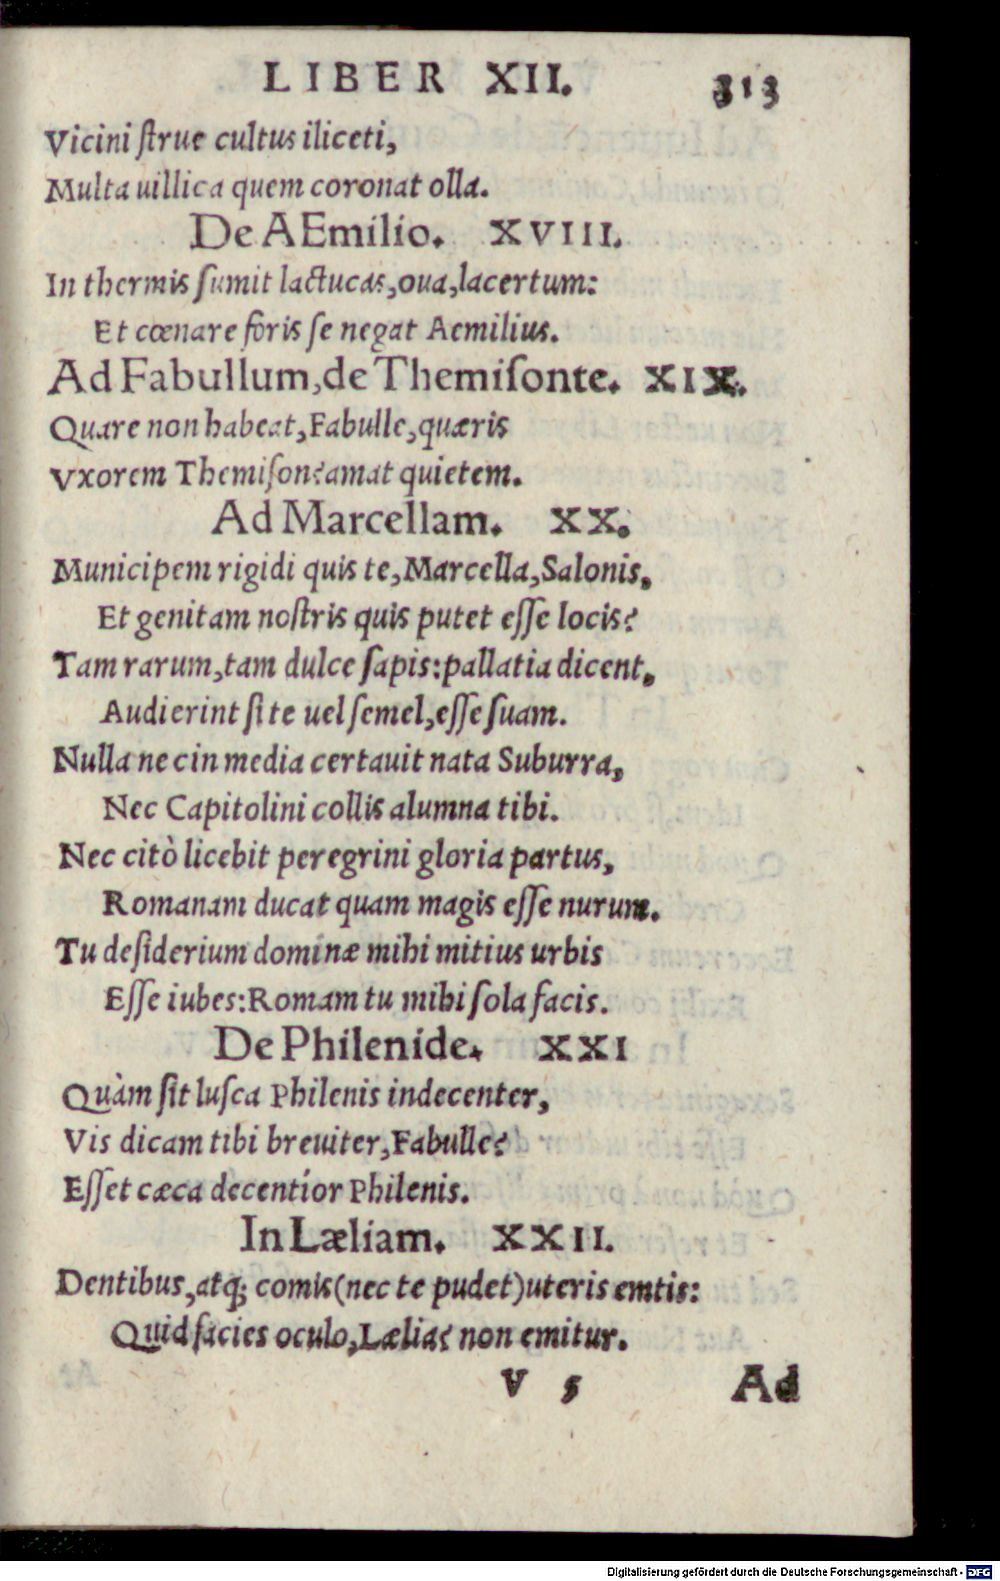 LIBER XII. 313
Vicini ſtrue cultus iliceti,
Multa uillica quem coronat olla.
De AEmilio. XVIII.
In thermis ſumit lactucas, oua, lacertum:
Et cœnare foris ſe negat Aemilius.
Ad Fabullum, de Themiſonte. XIX.
Quare non habeat, Fabulle, quæris
Vxorem Themiſon? amat quietem.
Ad Marcellam. XX.
Municipem rigidi quis te, Marcella, Salonis,
Et genitam noſtris quis putet eſſe locis?
Tam rarum, tam dulce ſapis: pallatia dicent,
Audierint ſi te uel ſemel, eſſe ſuam.
Nulla nec in media certauit nata Suburra,
Nec Capitolini collis alumna tibi.
Nec citò licebit peregrini gloria partus,
Romanam ducat quam magis eſſe nurum.
Tu deſiderium dominæ mihi mitius urbis
Eſſe iubes: Romam tu mihi ſola facis.
De Philenide. XXI
Quàm ſit luſca Philenis indecenter,
Vis dicam tibi breuiter, Fabulle?
Eſſet cæca decentior Philenis.
In Læliam. XXII.
Dentibus, atq; comis (nec te pudet) uteris emtis:
Quid facies oculo, Lælia? non emitur.
V 5 Ad
Digitalisierung gefördert durch die Deutsche Forschungsgemeinschaft - DFG